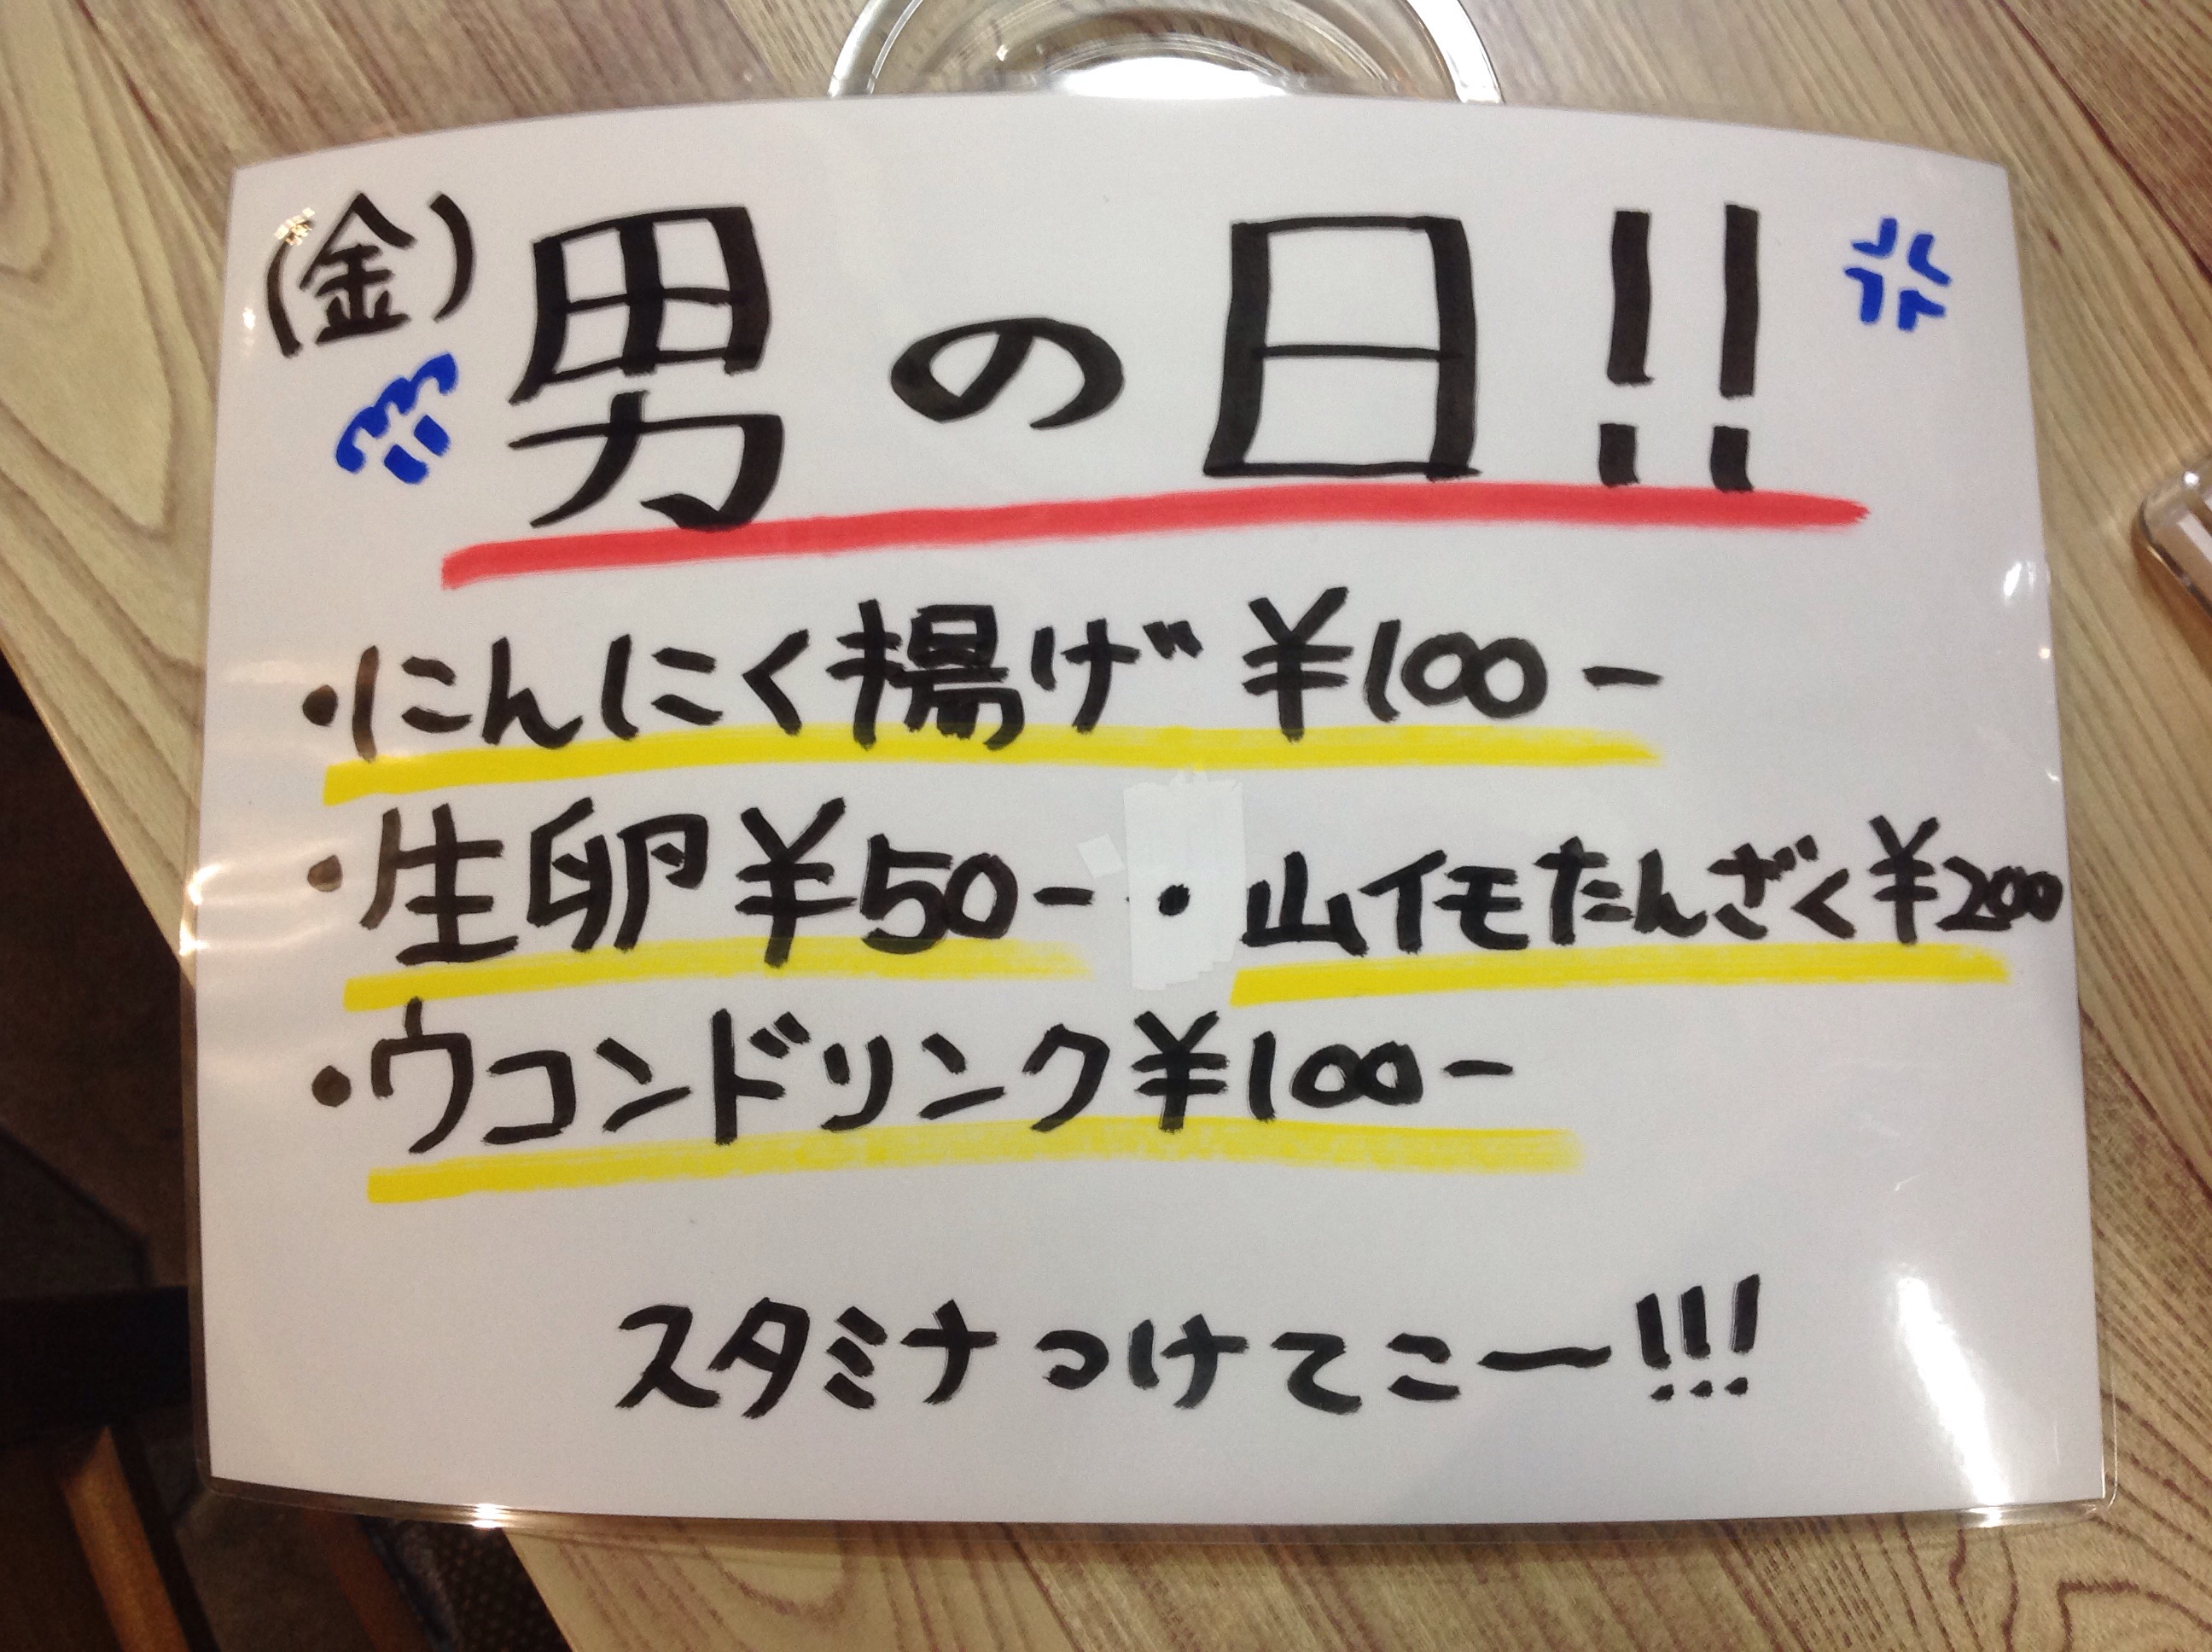 (金) 男の日!!
・にんにく揚げ ¥100-
・生卵¥50- ・山イモたんざく¥200
・ウコンドリンク¥100-
スタミナつけてこー!!!